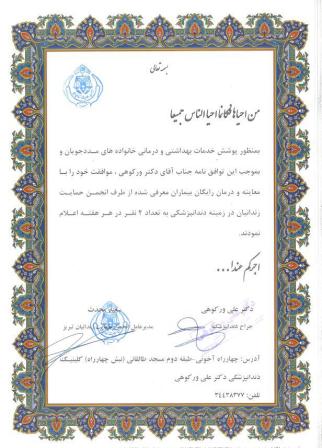 بسمه تعالی
من احیاها فکانما احیا الناس جمیعا
بمنظور پوشش خدمات بهداشتی و درمانی خانواده های مددجویان و
بموجب این توافق نامه جناب آقای دکتر ورکوهی ، موافقت خود را با
معاینه و درمان رایگان بیماران معرفی شده از طرف انجمن حمایت
زندانیان در زمینه دندانپزشکی به تعداد ۲ نفر در هر هفته اعلام
نمودند.
اجرکم عندا...
دکتر علی ورکوهی
جراح دندانپزشک
محدث
مدیرعامل زندانیان تبریز
آدرس: چهارراه آخونی -طبقه دوم مسجد طالقانی (نبش چهارراه) کلینیک
دندانپزشکی دکتر علی ورکوهی
تلفن: ۳۴۴۳۸۳۷۷